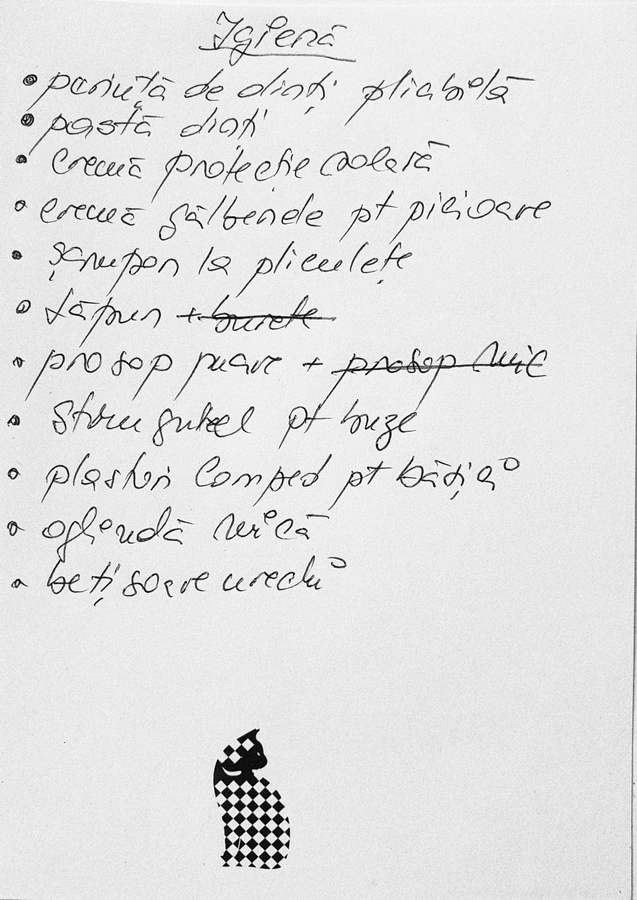 Igienă
• periuță de dinți pliabilă
• pastă dinți
• cremă protecție solară
• cremă gălbenele pt picioare
• șampon la pliculețe
• săpun + burete
• prosop mare + prosop mic
• strugurel pt buze
• plasturi Compeed pt bătăi
• oglindă mică
• bețișoare urechi